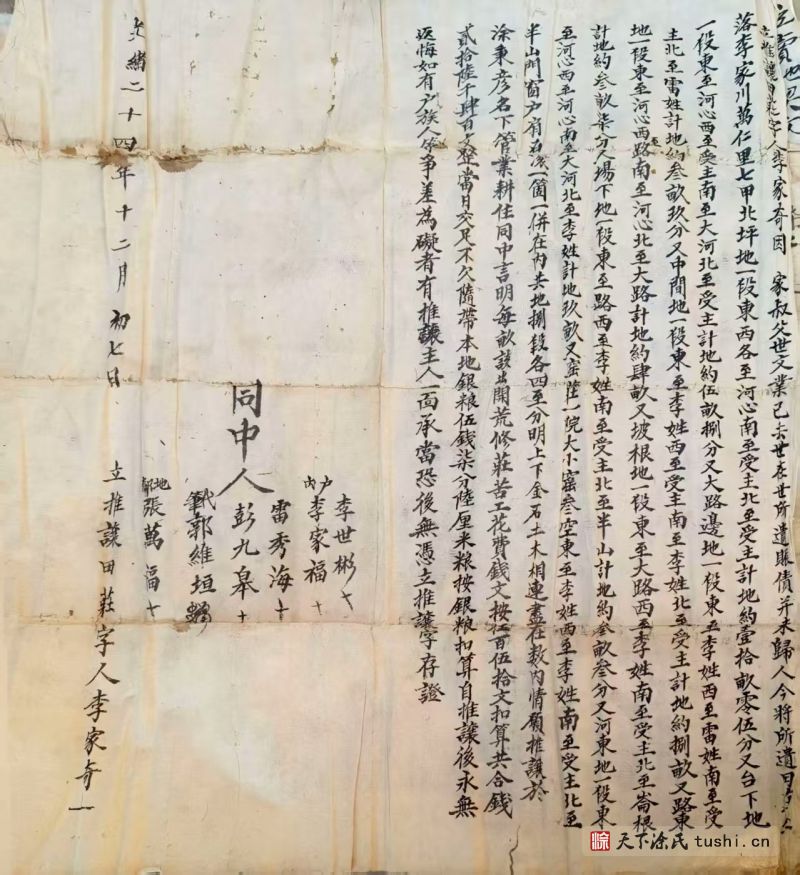 立賣
立推讓田莊字人李家奇因　家叔父世文業已去世在世所遺賬債并未歸人今將所遺
落李家川萬仁里七甲北坪地一段東西各至河心南至受主北至受主計地約壹拾畝零伍分又台下地
一段東至河心西至受主南至大河北至受主計地約伍畝捌分又大路邊地一段東至李姓西至雷姓南至受
主北至雷姓計地約叁畝玖分又中間地一段東至李姓西至受主南至李姓北至受主計地約捌畝又路東
地一段東至河心西至路南至河心北至大路計地約肆畝又坡根地一段東至大路西至李姓南至受主北至崙根
計地約叁畝柒分又場下地一段東至路西至李姓南至受主北至半山計地約叁畝叁分又河東地一段東
至河心西至河心南至大河北至李姓計地玖畝又窑莊一院大小窑叁空東至李姓西至李姓南至受主北至
半山門窗户扇石滚一箇一併在内共地捌段各四至分明上下金石土木相連盡在数内情願推讓於
涂秉彦名下管業耕住同中言明每畝議出開荒修莊苦工花費錢文按伍百伍拾文扣算共合錢
貳拾陸千肆百文整當日交足不欠隨帶本地銀粮伍錢柒分陸厘米粮按銀粮扣算自推讓後永無
返悔如有户族人等争差為礙者有推讓主人一面承當恐後無憑立推讓字存證
户内
李世彬 十
李家福 十
同中人
雷秀海 十
彭九皋 十
代筆 郭維垣
地鄰 張萬福 十
立推讓田莊字人李家奇 一
光緒二十四年十二月初七日
涂 天下涂氏 tushi.cn